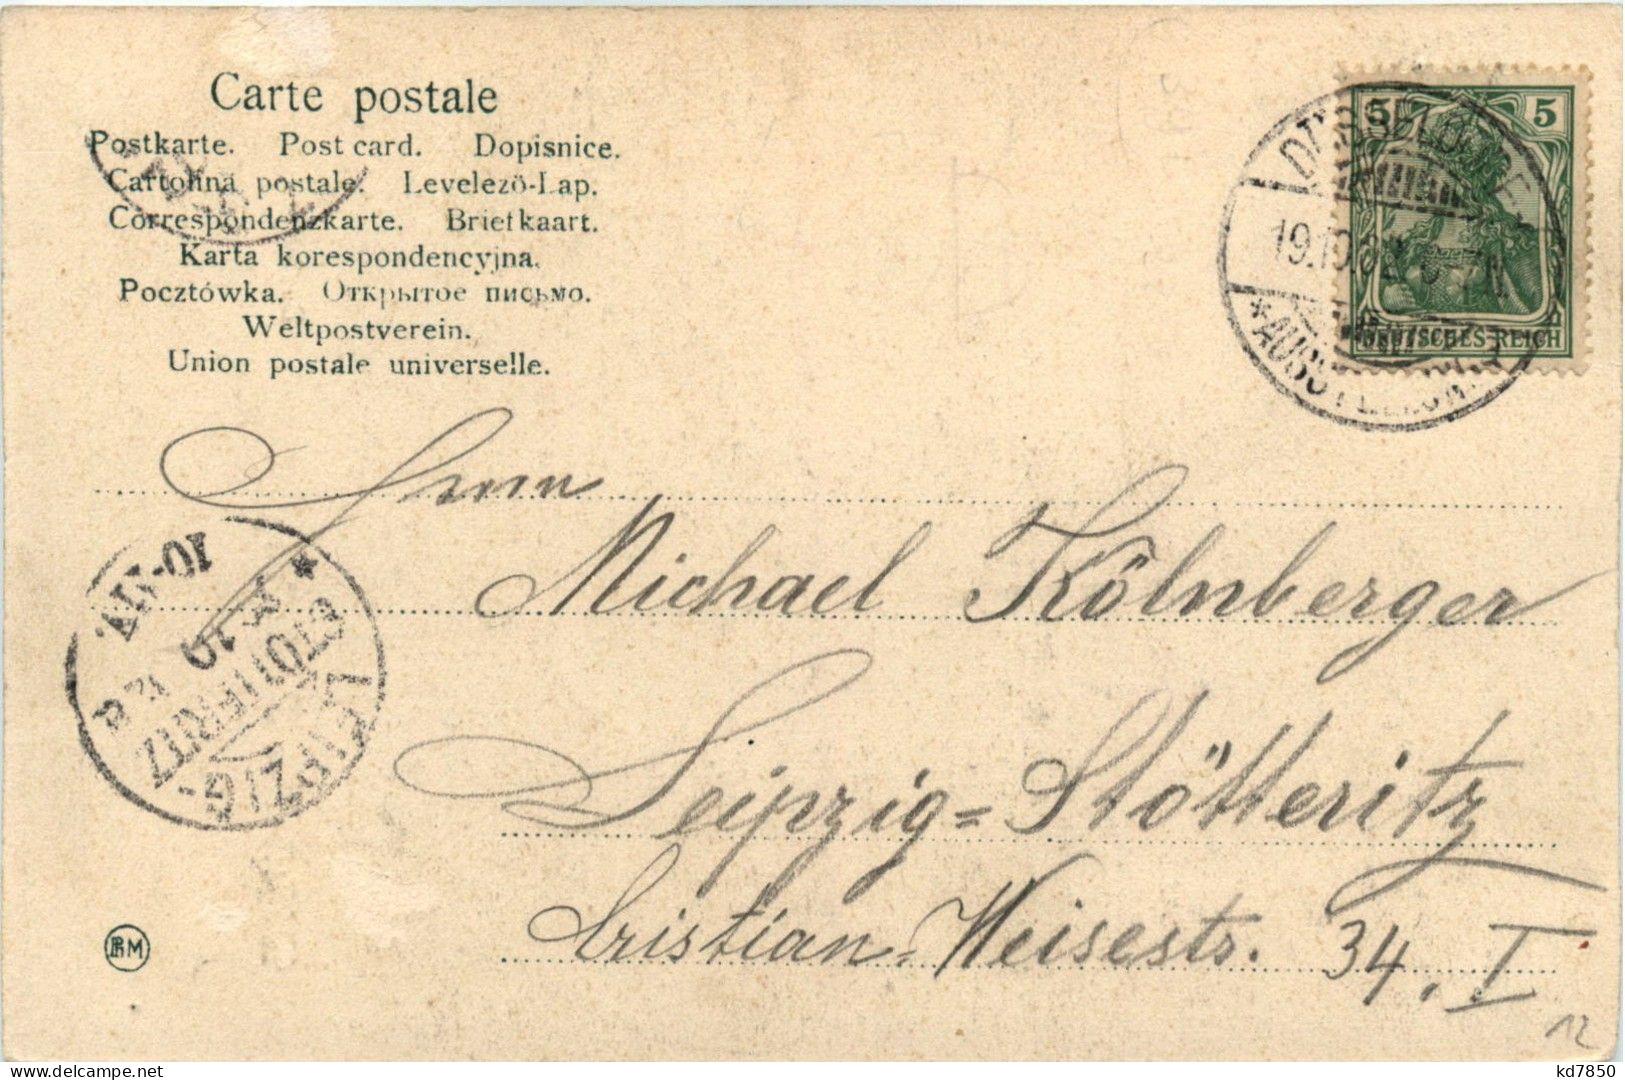 Carte postale
Postkarte. Post card. Dopisnice.
Cartolina postale. Levelezö-Lap.
Correspondenzkarte. Briefkaart.
Karta korespondencyjna.
Pocztówka. Открытое письмо.
Weltpostverein.
Union postale universelle.
5 5
DEUTSCHES REICH
DÜSSELDORF
19.10.
* AUSSTELLUNG
Herrn
Michael Kölnberger
Leipzig=Stötteritz
Cristian=Weisestr. 34, I
* LEIPZIG-
STÖTTERITZ
10-11V.
12
kd7850